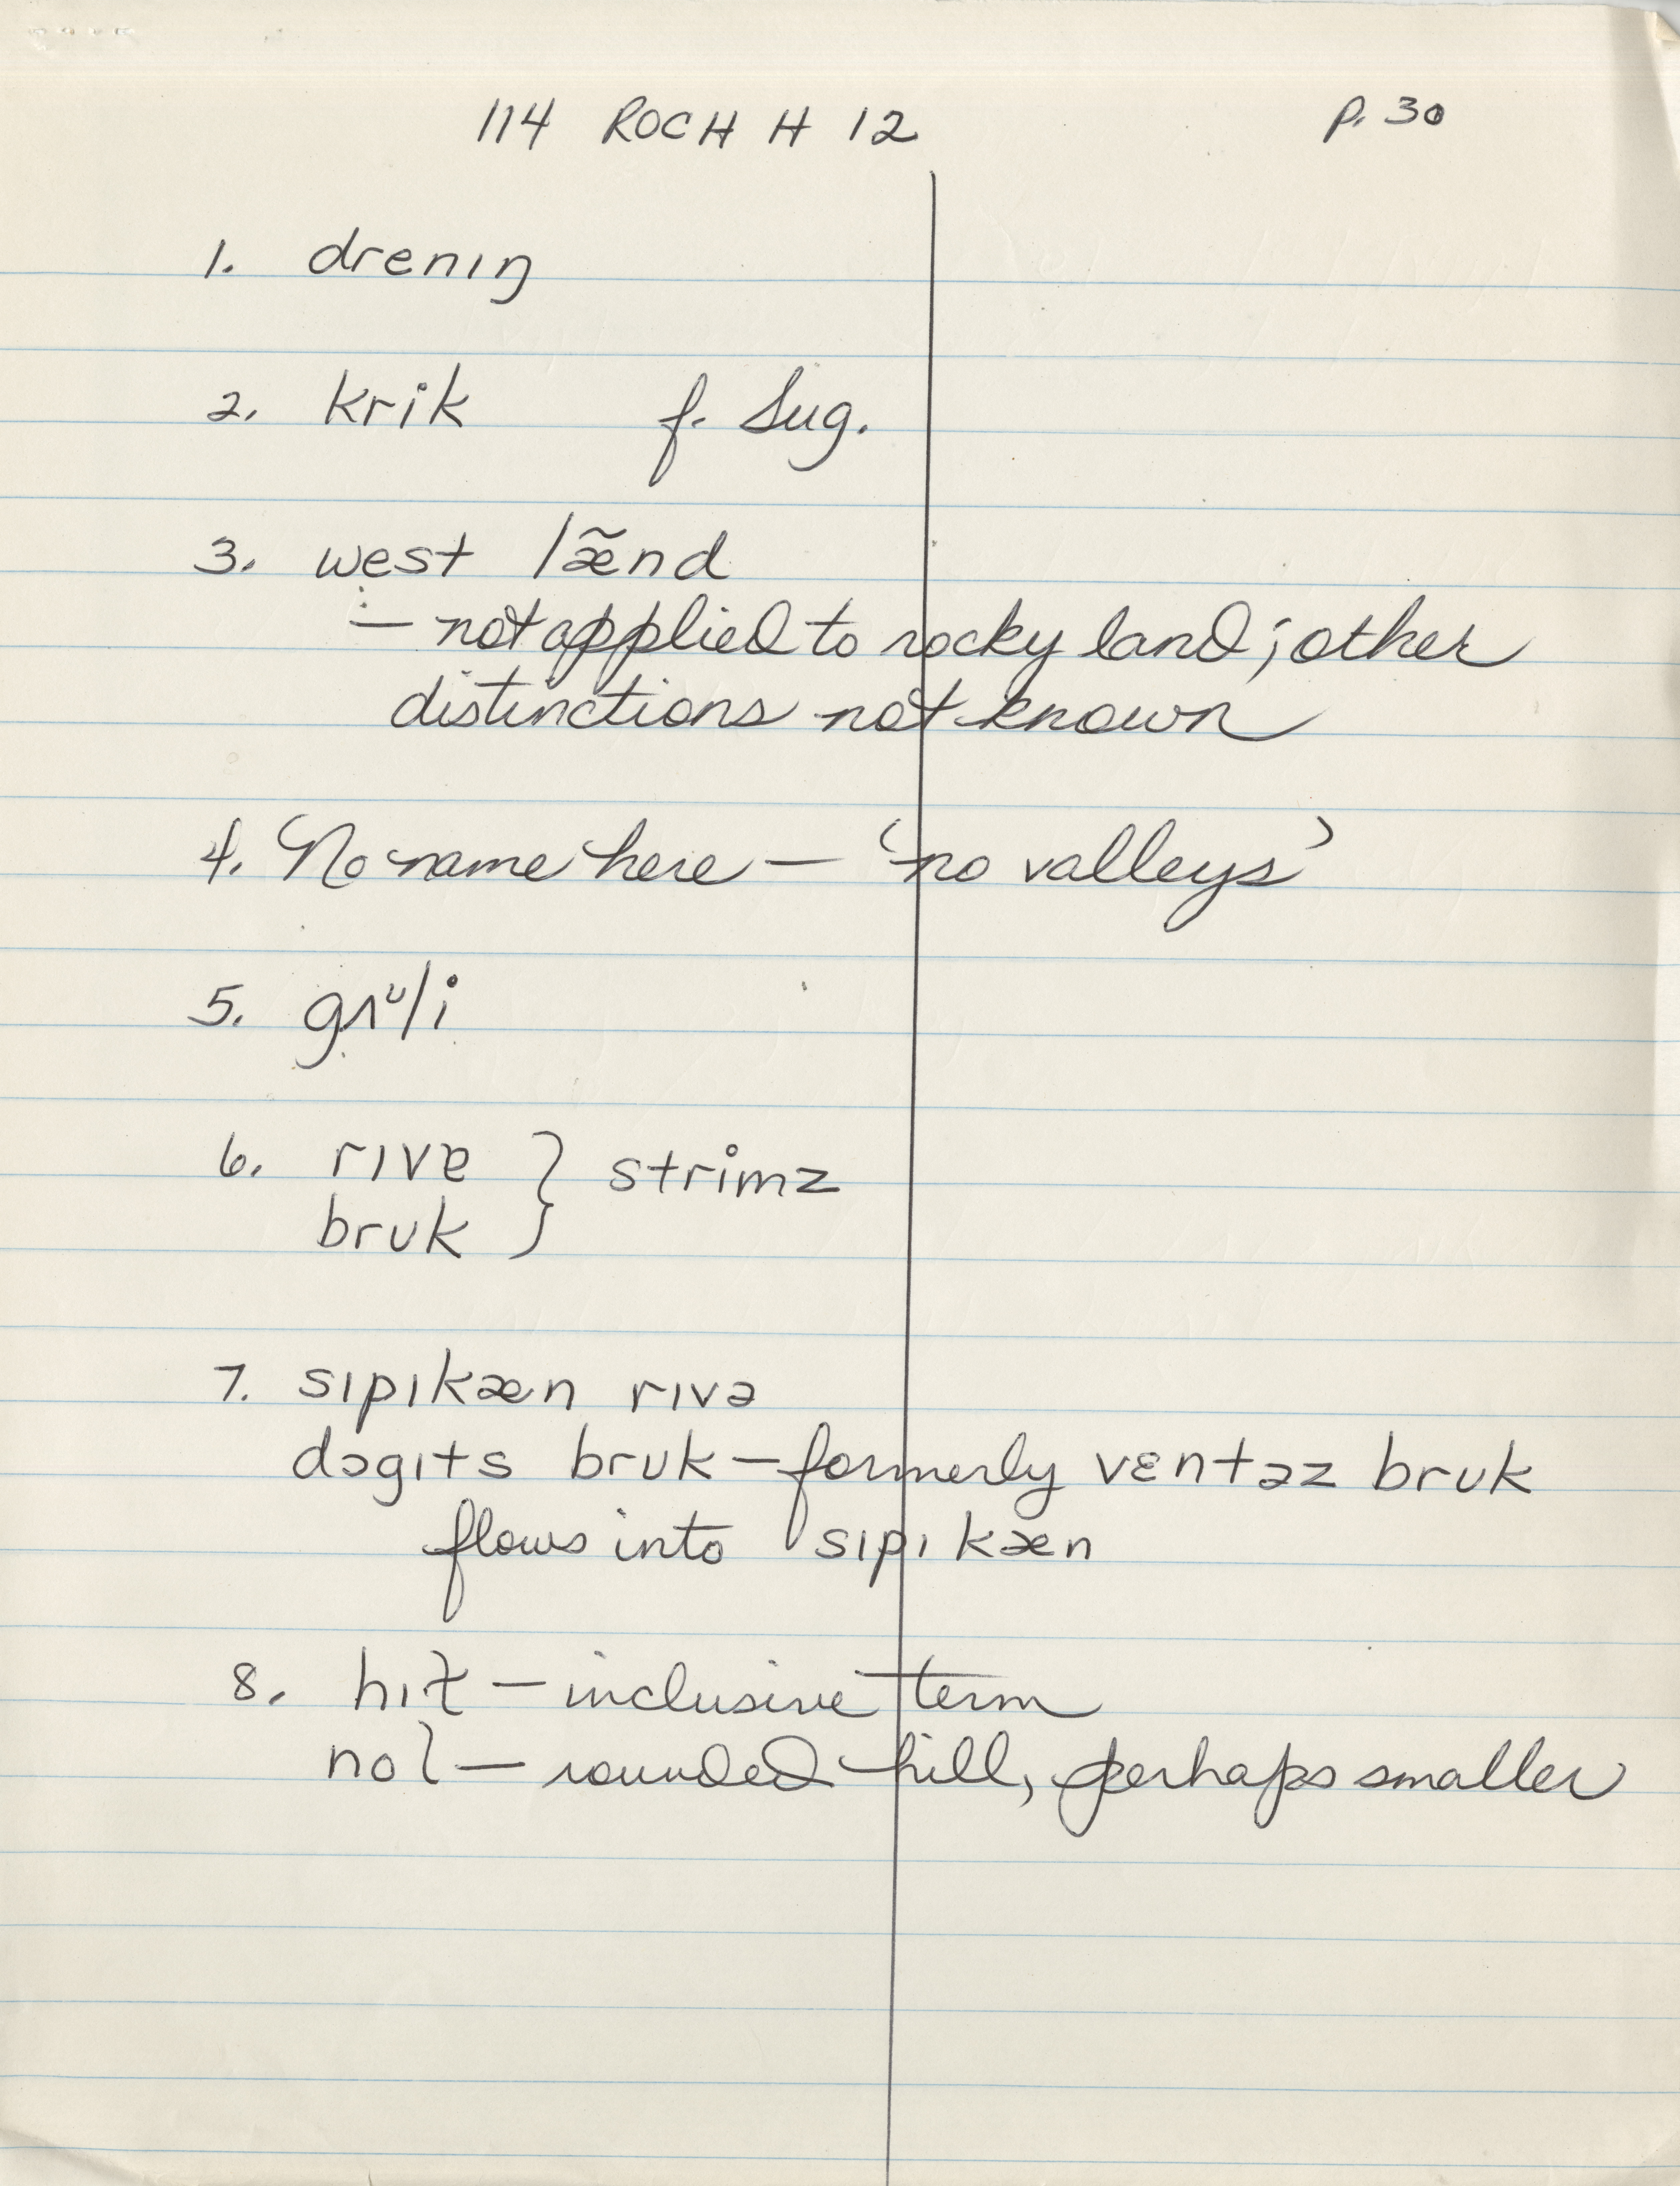 114 ROCH H 12 p. 30
1. drenıŋ
2. krik f. Sug.
3. west læ̃nd
÷ not applied to rocky land; other
distinctions not known
4. No name here – 'no valleys'
5. gʌᶷli
6. rıvɐ } strimz
bruk
7. sıpıkæn rıvə
dɔgıts bruk – formerly vɛntəz bruk
flows into sıpıkæn
8. hıɫ – inclusive term
nol – rounded hill, perhaps smaller